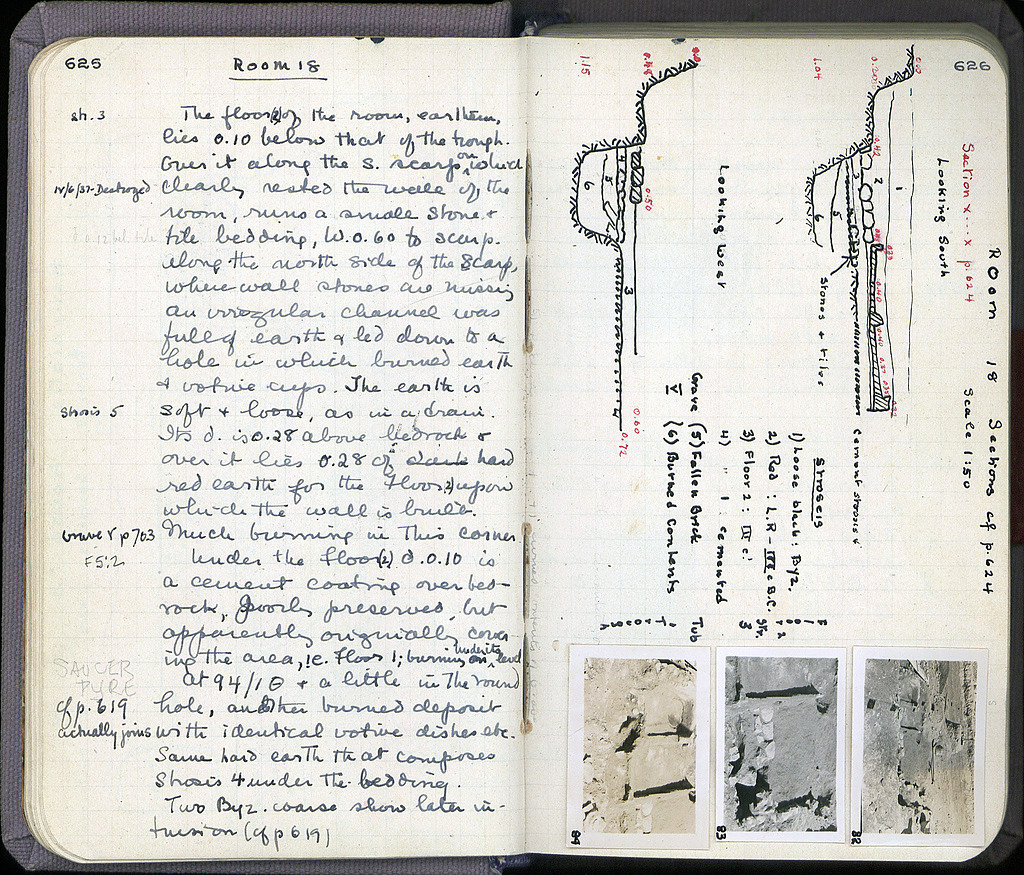 625
Room 18
Str. 3
The floor (2) of the room, earthen,
lies 0.10 below that of the trough.
Over it along the S. scarp, on which
IV/6/37-Destroyed
clearly rested the wall of the
room, runs a small stone +
tile bedding, W. 0.60 to scarp.
Along the north side of the scarp,
where wall stones are missing
an irregular channel was
full of earth & led down to a
hole in which burned earth
& votive cups. The earth is
Strosis 5
soft & loose, as in a drain.
Its d. is 0.28 above bedrock &
over it lies 0.28 of hard
red earth for the Floor 2, upon
which the wall is built.
Grave V p 703
Much burning in this corner
F5:2
Under the floor (2) d. 0.10 is
a cement coating over bed-
rock, poorly preserved, but
apparently originally cover-
ing the area, i.e. Floor 1; burning on under its level
SAUCER
PYRE
At 94/10 & a little in the round
cf p. 619
hole, another burned deposit
actually joins
with identical votive dishes etc.
Same hard earth that composes
Strosis 4 under the bedding.
Two Byz. coarse show later in-
trusion (cf p 619)
626
Room 18 Sections cf p. 624
Scale 1:50
Section x....x p. 624
Looking South
0.0
0.20
0.42
1.04
1
2
3
5
6
Stones + tiles
cement strosis 4
Looking West
0.0
0.48
1.15
0.50
0.60
0.72
3
4
5
6
STROSEIS
1) Loose black: Byz.
2) Red: L.R - IVth c B.C. Str. 3
3) Floor 2: IV c.
4) " 1 cemented
Grave V
(5) Fallen Brick
(6) Burned Contents
Tub
82
83
84